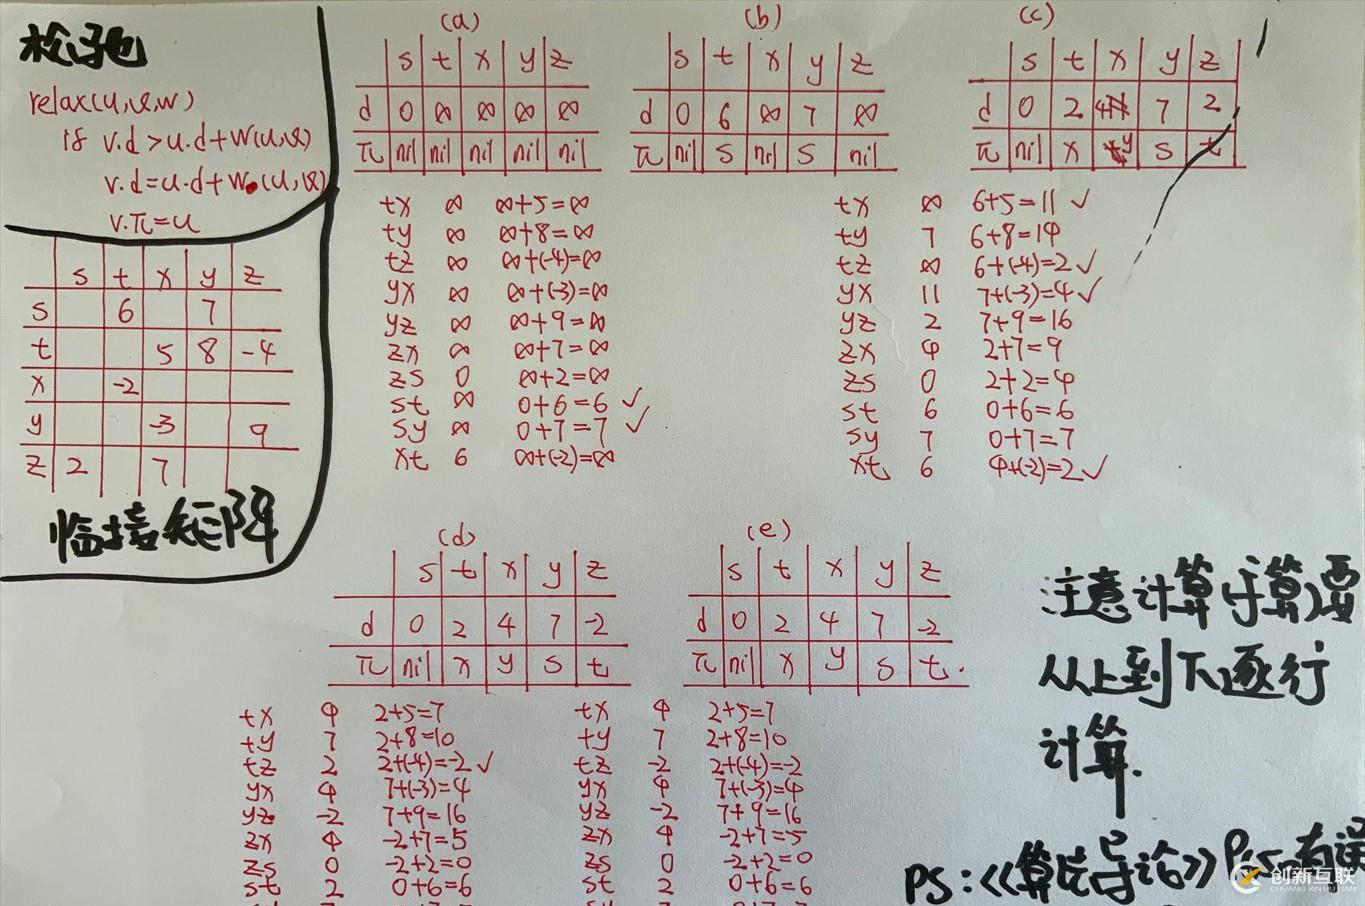 松弛
relax(u,v,w)
if v.d > u.d + w(u,v)
v.d = u.d + w(u,v)
v.π = u
s t x y z
s 6 7
t 5 8 -4
x -2
y -3 9
z 2 7
临接矩阵
(a)
s t x y z
d 0 ∞ ∞ ∞ ∞
π nil nil nil nil nil
tx ∞ ∞+5=∞
ty ∞ ∞+8=∞
tz ∞ ∞+(-4)=∞
yx ∞ ∞+(-3)=∞
yz ∞ ∞+9=∞
zx ∞ ∞+7=∞
zs 0 ∞+2=∞
st ∞ 0+6=6 ✓
sy ∞ 0+7=7 ✓
xt 6 ∞+(-2)=∞
(b)
s t x y z
d 0 6 ∞ 7 ∞
π nil s nil s nil
(c)
s t x y z
d 0 2 4 7 2
π nil x y s t
tx ∞ 6+5=11 ✓
ty 7 6+8=14
tz ∞ 6+(-4)=2 ✓
yx 11 7+(-3)=4 ✓
yz 2 7+9=16
zx 4 2+7=9
zs 0 2+2=4
st 6 0+6=6
sy 7 0+7=7
xt 6 4+(-2)=2 ✓
(d)
s t x y z
d 0 2 4 7 -2
π nil x y s t
tx 4 2+5=7
ty 7 2+8=10
tz 2 2+(-4)=-2 ✓
yx 4 7+(-3)=4
yz -2 7+9=16
zx 4 -2+7=5
zs 0 -2+2=0
st 2 0+6=6
(e)
s t x y z
d 0 2 4 7 -2
π nil x y s t.
tx 4 2+5=7
ty 7 2+8=10
tz -2 2+(-4)=-2
yx 4 7+(-3)=4
yz -2 7+9=16
zx 4 -2+7=5
zs 0 -2+2=0
st 2 0+6=6
注意计算(手算)要
从上到下逐行
计算.
PS:《算法导论》
创新互联
CHUANG XIN HU LIAN